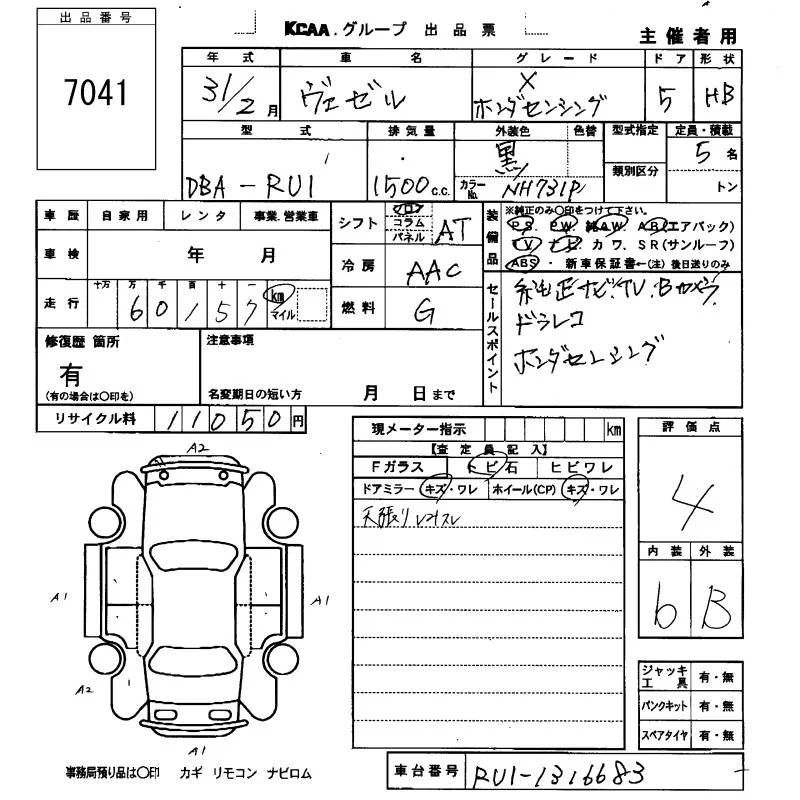 出品番号
7041
KCAA.グループ 出品票
主催者用
年式 車名 グレード ドア 形状
31/2月 ヴェゼル X ホンダセンシング 5 HB
型式 排気量 外装色 色替 型式指定 定員・積載
類別区分
DBA-RU1 1500c.c. 黒 カラーNo. NH731P 5名
トン
車歴 自家用 レンタ 事業.営業車
シフト フロア コラム パネル AT
装備品
※純正のみ〇印をつけて下さい。
PS. PW. 純AW. AB(エアバック)
TV ナビ カワ. SR(サンルーフ)
ABS・ 新車保証書←(注)後日送りのみ
車検 年 月
冷房 AAC
走行 十万 万 千 百 十 一
60157 km マイル
燃料 G
セールスポイント
純正ナビ.TV.Bカメラ
ドラレコ
ホンダセンシング
修復歴 箇所
有
(有の場合は〇印を)
注意事項
名変期日の短い方 月 日まで
リサイクル料 11050円
現メーター指示 km
【査定員記入】
Fガラス トビ石 ヒビワレ
ドアミラー キズ・ワレ ホイール(CP) キズ・ワレ
天張り
評価点
4
内装 外装
b B
A2
A1 A1
A2
A1
ジャッキ工具 有・無
パンクキット 有・無
スペアタイヤ 有・無
事務局預り品は〇印 カギ リモコン ナビロム
車台番号 RU1-1316683